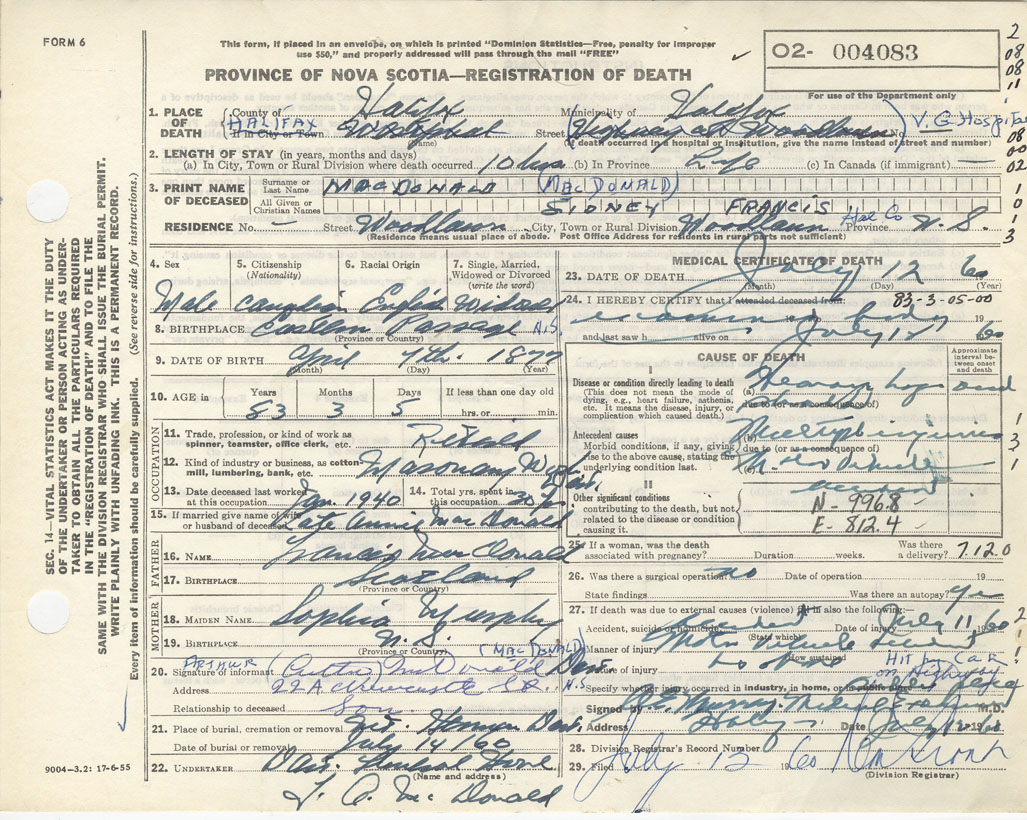 FORM 6
This form, if placed in an envelope, on which is printed "Dominion Statistics—Free, penalty for improper
use $50," and properly addressed will pass through the mail "FREE"
PROVINCE OF NOVA SCOTIA—REGISTRATION OF DEATH
02- 004083
For use of the Department only
2
08
08
11
08
00
02
1
0
1
3
1. PLACE OF DEATH
County of Halifax Municipality of Halifax
HALIFAX If in City or Town Westphal Street Highway at Woodlawn No. V.G. Hospital
(Name) (If death occurred in a hospital or institution, give the name instead of street and number)
2. LENGTH OF STAY (in years, months and days)
(a) In City, Town or Rural Division where death occurred. 10 hrs (b) In Province Life (c) In Canada (if immigrant). —
3. PRINT NAME OF DECEASED
Surname or Last Name MACDONALD (MACDONALD)
All Given or Christian Names SIDNEY FRANCIS
RESIDENCE No. — Street Woodlawn City, Town or Rural Division Woodlawn Hal Co Province N.S.
(Residence means usual place of abode. Post Office Address for residents in rural parts not sufficient)
4. Sex Male
5. Citizenship (Nationality) Canadian
6. Racial Origin English
7. Single, Married, Widowed or Divorced (write the word)
8. BIRTHPLACE Eastern Passage N.S.
(Province or Country)
9. DATE OF BIRTH April 7th. 1877
(Month) (Day) (Year)
10. AGE in Years 83 Months 3 Days 5 If less than one day old hrs. or min.
OCCUPATION
11. Trade, profession, or kind of work as spinner, teamster, office clerk, etc. Retired
12. Kind of industry or business, as cotton-mill, lumbering, bank, etc.
13. Date deceased last worked at this occupation Jan 1940
14. Total yrs. spent in this occupation
15. If married give name of wife or husband of deceased Annie MacDonald
FATHER
16. NAME Francis MacDonald
17. BIRTHPLACE Scotland
(Province or Country)
MOTHER
18. MAIDEN NAME Sophia Murphy
19. BIRTHPLACE N.S.
(Province or Country) (MACDONALD)
20. Signature of informant ARTHUR
Address 22A Newcastle St. Dart. N.S.
Relationship to deceased Son
21. Place of burial, cremation or removal Mt. Hermon Dart.
Date of burial or removal July 14/60
22. UNDERTAKER Dart. Funeral Home
(Name and address)
MacDonald
MEDICAL CERTIFICATE OF DEATH
23. DATE OF DEATH July 12 60
(Month) (Day) (Year)
24. I HEREBY CERTIFY that I attended deceased from: 83-3-05-00
examined body 19
and last saw h alive on July 12 60
CAUSE OF DEATH
Approximate interval between onset and death
I
Disease or condition directly leading to death
(This does not mean the mode of dying, e.g., heart failure, asthenia, etc. It means the disease, injury, or complication which caused death.)
(a) and
due to (or as a consequence of)
Antecedent causes
Morbid conditions, if any, giving rise to the above cause, stating the underlying condition last.
(b) Multiple injuries
due to (or as a consequence of)
(c) Motor Vehicle
accident
1
3
1
II
Other significant conditions
contributing to the death, but not related to the disease or condition causing it.
N - 996.8
E - 812.4
25. If a woman, was the death associated with pregnancy? Duration weeks. Was there a delivery? 7.12.0
26. Was there a surgical operation? no Date of operation 19
State findings Was there an autopsy? Yes
27. If death was due to external causes (violence) fill in also the following:—
Accident, suicide or homicide Accident Date of injury July 11 1960 2
(State which)
Manner of injury Motor Vehicle
(How sustained)
Nature of injury HIT by CAR on Highway
Specify whether injury occurred in industry, in home, or in public place
Signed by M.D.
Address Date July 12 1960
28. Division Registrar's Record Number
29. Filed July 12 1960
(Division Registrar)
SEC. 14—VITAL STATISTICS ACT MAKES IT THE DUTY
OF THE UNDERTAKER OR PERSON ACTING AS UNDER-
TAKER TO OBTAIN ALL THE PARTICULARS REQUIRED
IN THE "REGISTRATION OF DEATH" AND TO FILE THE
SAME WITH THE DIVISION REGISTRAR WHO SHALL ISSUE THE BURIAL PERMIT.
WRITE PLAINLY WITH UNFADING INK. THIS IS A PERMANENT RECORD.
Every item of information should be carefully supplied. (See reverse side for instructions.)
9004—3.2: 17-6-55